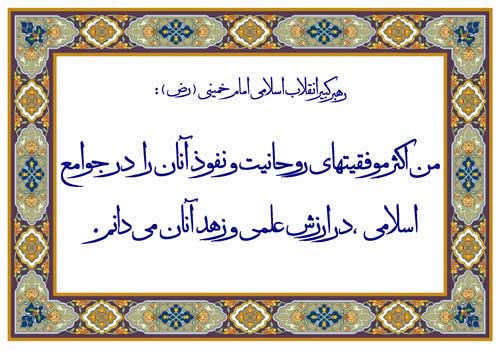 رهبر کبیر انقلاب اسلامی امام خمینی (رض) :
من اکثر موفقیتهای روحانیت و نفوذ آنان را در جوامع
اسلامی ، در ارزش علمی و زهد آنان می دانم.